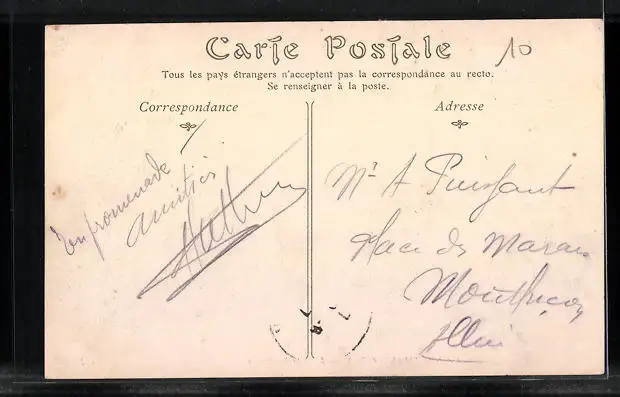 Carte Postale
10
Tous les pays étrangers n'acceptent pas la correspondance au recto.
Se renseigner à la poste.
Correspondance
Adresse
En promenade
Amitiés
Mr A Puissant
Place des Marais
Montluçon
Allier